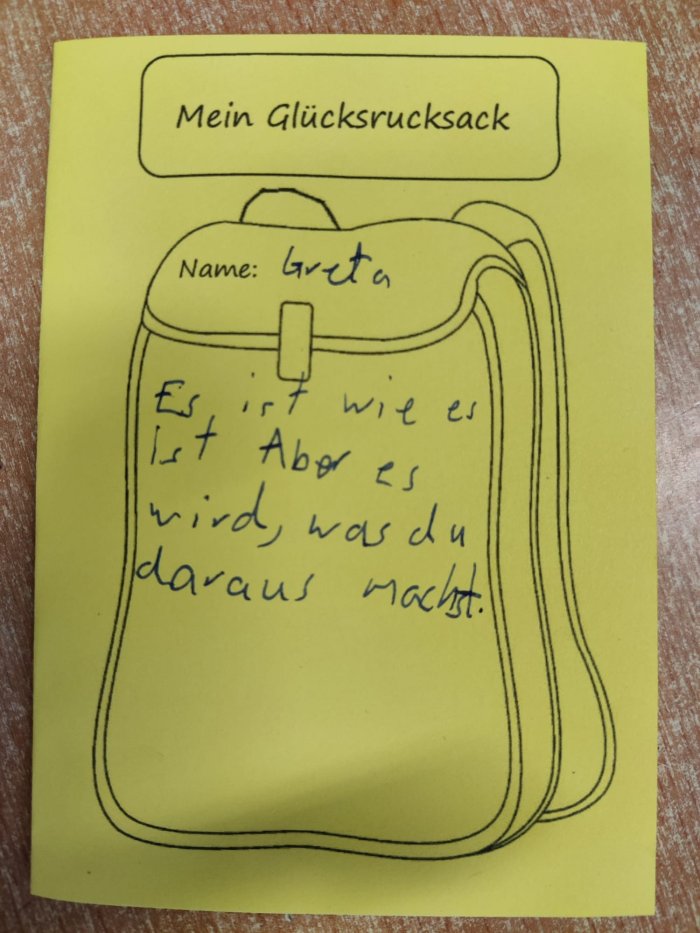 Mein Glücksrucksack
Name: Greta
Es ist wie es
ist Aber es
wird, was du
daraus machst.